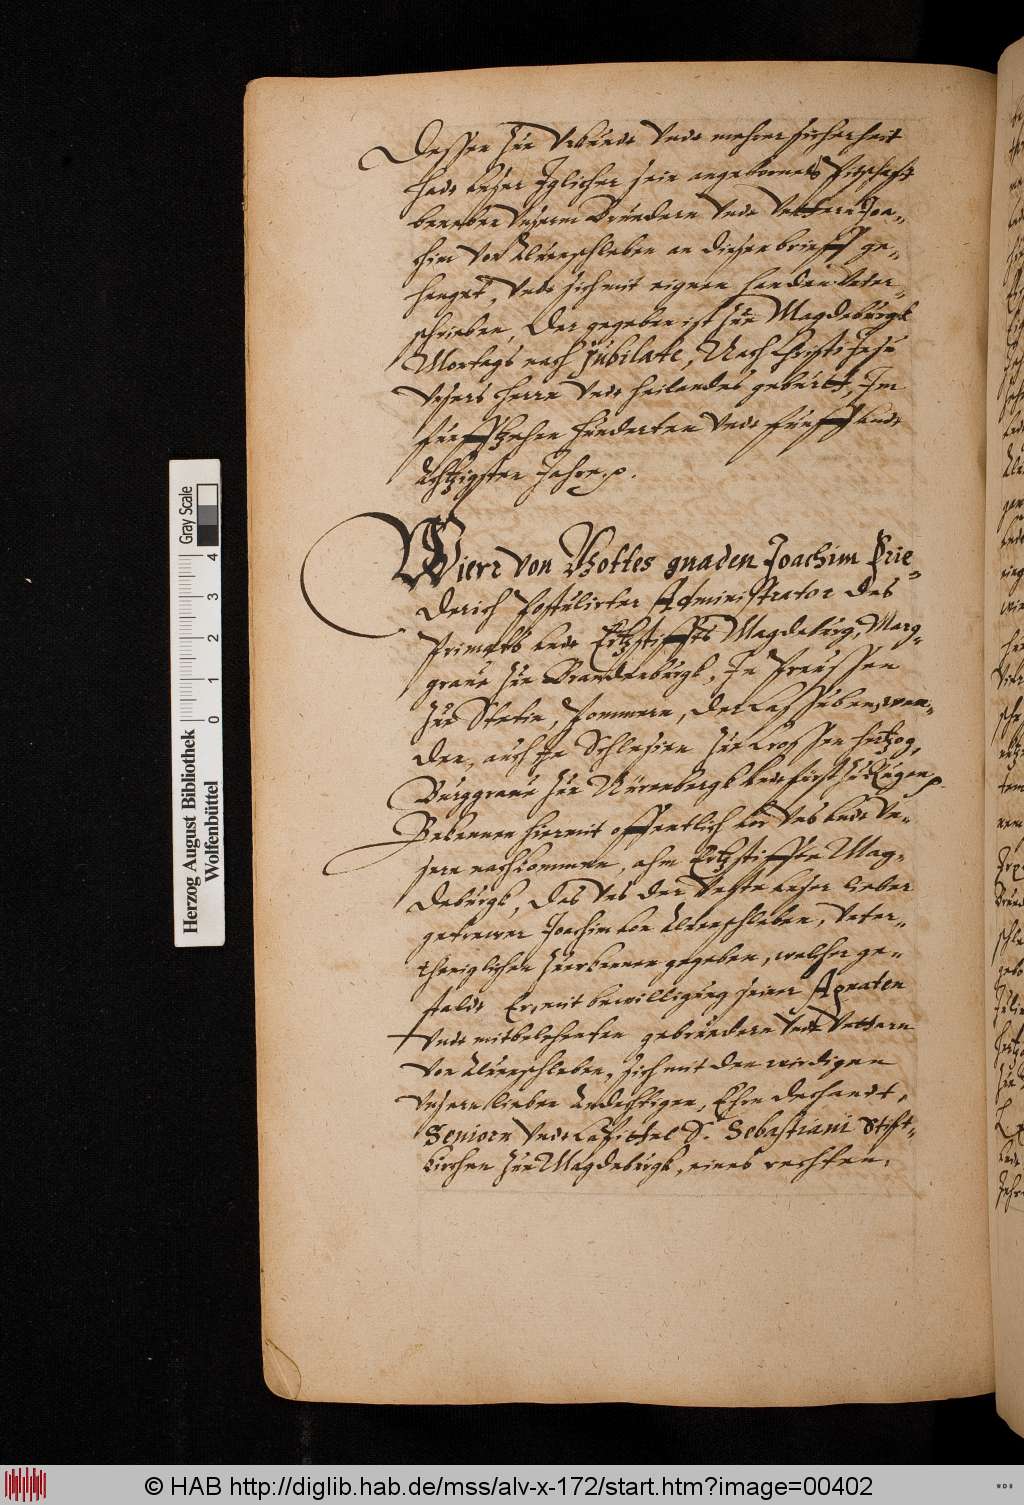 Dessen zue Vrkundt Vndt mehrer sicherheit
hadt Unser Jglicher sein angebornes Pitzschafft
beneben Vnserm Bruedern Vndt Vettern Joa„
chim von Aluenschleben an diesen brieff ge„
henget, Vndt sich mit eignen handen Vnter„
schrieben, Der gegeben ist zue Magdeburgk
Montags nach Jubilate, Nach Christi Jesu
Vnsers Herrn Vndt heilandes geburtt, Im
funffzehen hunderten Vndt funff Vndt
Achtzigsten Jahre. p.
Wierr von Gottes gnaden Joachim Frie„
derich Postulirter Administrator des
Primatts Vndt Ertzstiffts Magdeburg, Marg„
graue zue Brandenburgk, In Preussen
zue Stetin, Pommern, der Cassuben, wen„
den, auch in Schlesien zue Crossen hertzog,
Burggraue zue Nürenbergk Vndt fürst zu Rügen p.
Bekennen hiermit offentlich vor Vns Vndt Vn„
sern nachkommen, ahm Ertzstiffte Mag„
deburgk, Das Vns der Veste Unser lieber
getrewer Joachim von Aluenschleben, Vnter„
theniglichen zuerkennen gegeben, welcher ge„
stalt Er, mit bewilligung seiner Agnaten
Vndt mitbelehenten gebruedern Vndt Vettern
von Aluenschleben, sich mit den wirdigen
Vnsern lieben Andechtigen, Ehrn Dechandt,
Seniorn Vndt Capittel S. Sebastiani Stift„
kirchen zue Magdeburgk, eines rechten,
Herzog August Bibliothek
Wolfenbüttel
Gray Scale
0 1 2 3 4
© HAB http://diglib.hab.de/mss/alv-x-172/start.htm?image=00402